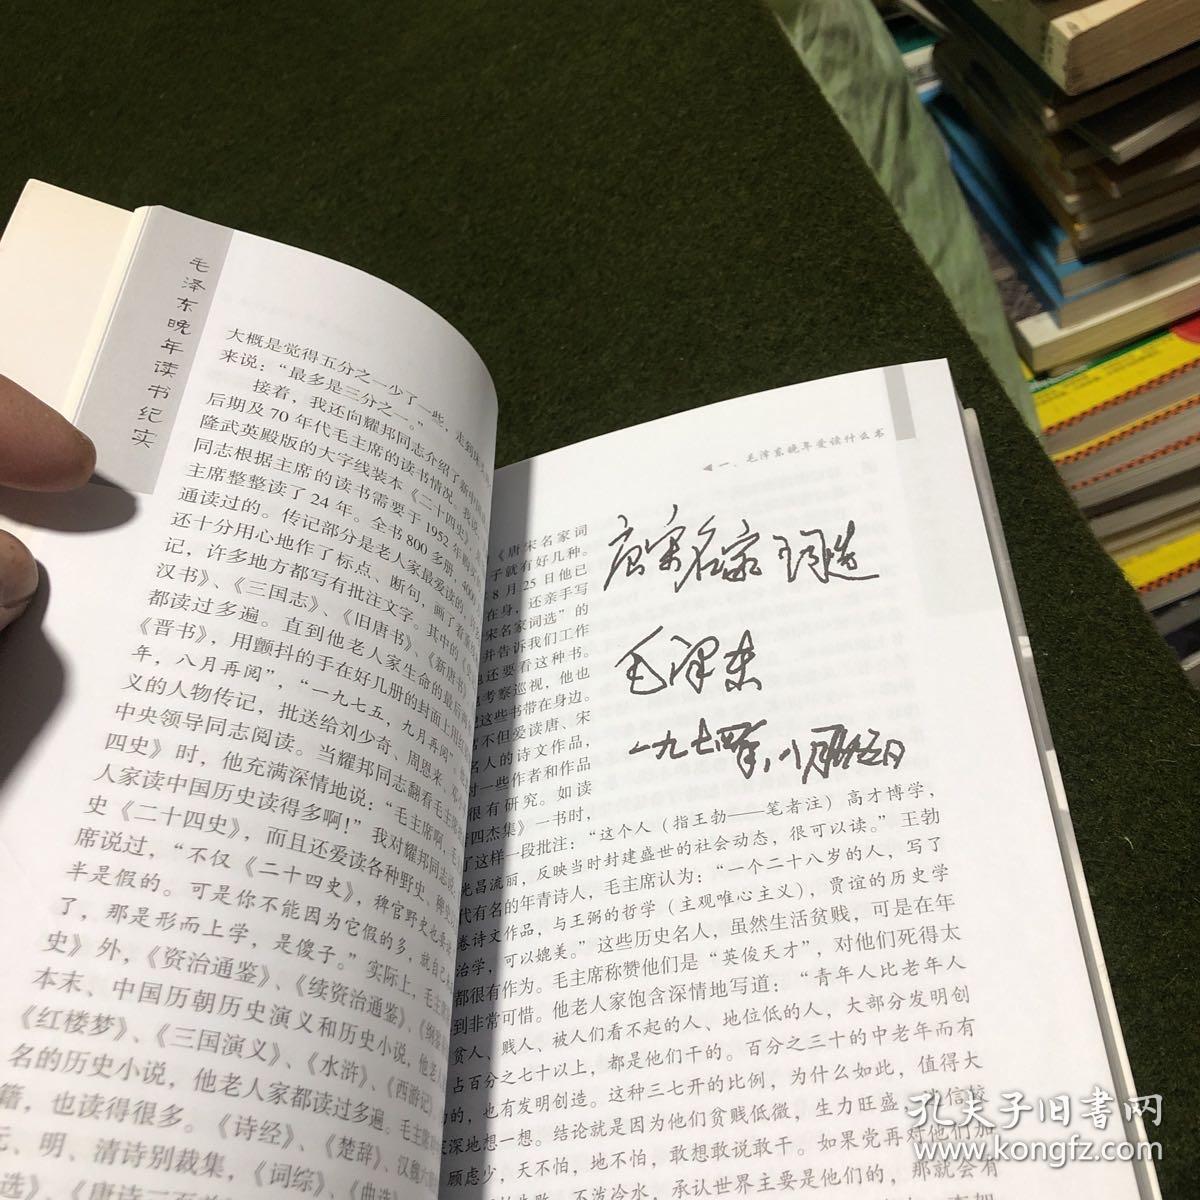 毛泽东晚年读书纪实
大概是觉得五分之一少了一些，走到
来说：“最多是三分之一。”
接着，我还向耀邦同志介绍了新中国
后期及70年代毛主席的读书情况。我说
隆武英殿版的大字线装本《二十四史》，是
同志根据主席的读书需要于1952年
主席整整读了24年。全书800多册，4000
通读过的。传记部分是老人家最爱读的，许
还十分用心地作了标点、断句，画了着重
记，许多地方都写有批注文字。其中的《史
汉书》、《三国志》、《旧唐书》、《新唐书》
都读过多遍。直到他老人家生命的最后
《晋书》，用颤抖的手在好几册的封面上用
年，八月再阅”，“一九七五，九月再阅”。
义的人物传记，批送给刘少奇、周恩来、邓
中央领导同志阅读。当耀邦同志翻看毛主席
四史》时，他充满深情地说：“毛主席啊，毛
人家读中国历史读得多啊！”我对耀邦同志说
史《二十四史》，而且还爱读各种野史、稗史
席说过，“不仅《二十四史》，稗官野史也要
半是假的。可是你不能因为它假的多，就自己
了，那是形而上学，是傻子。”实际上，毛主席
史》外，《资治通鉴》、《续资治通鉴》、《纲鉴
本末、中国历朝历史演义和历史小说，他老
《红楼梦》、《三国演义》、《水浒》、《西游记》
名的历史小说，他老人家都读过多遍。毛主席
籍，也读得很多。《诗经》、《楚辞》、汉魏六
元、明、清诗别裁集，《词综》、《曲选》
选》、《唐诗三百首
◀一、毛泽东晚年爱读什么书
唐宋名家词选
毛泽东
一九七四年，八月廿五日
《唐宋名家词
子就有好几种。
8月25日他已
在身，还亲手写
宋名家词选”的
并告诉我们工作
也还要看这种书。
考察巡视，他也
这些书带在身边。
不但爱读唐、宋
名人的诗文作品，
对一些作者和作品
很有研究。如读
四杰集》一书时，
了这样一段批注：“这个人（指王勃——笔者注）高才博学，
光昌流丽，反映当时封建盛世的社会动态，很可以读。”王勃
代有名的年青诗人，毛主席认为：“一个二十八岁的人，写了
卷诗文作品，与王弼的哲学（主观唯心主义），贾谊的历史学
治学，可以媲美。”这些历史名人，虽然生活贫贱，可是在年
都很有作为。毛主席称赞他们是“英俊天才”，对他们死得太
到非常可惜。他老人家饱含深情地写道：“青年人比老年人
贫人、贱人、被人们看不起的人、地位低的人，大部分发明创
占百分之七十以上，都是他们干的。百分之三十的中老年而有
的，也有发明创造。这种三七开的比例，为什么如此，值得大
深地想一想。结论就是因为他们贫贱低微，生力旺盛，迷信较
顾虑少，天不怕，地不怕，敢想敢说敢干。如果党再对他们加
不泼冷水，承认世界主要是他们的，那就会有
孔夫子旧书网
www.kongfz.com